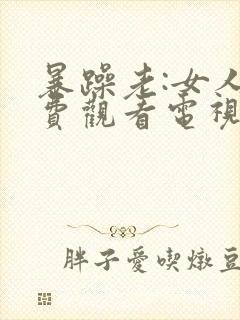 暴躁老:女人
費觀看電視
胖子愛喫燉豆